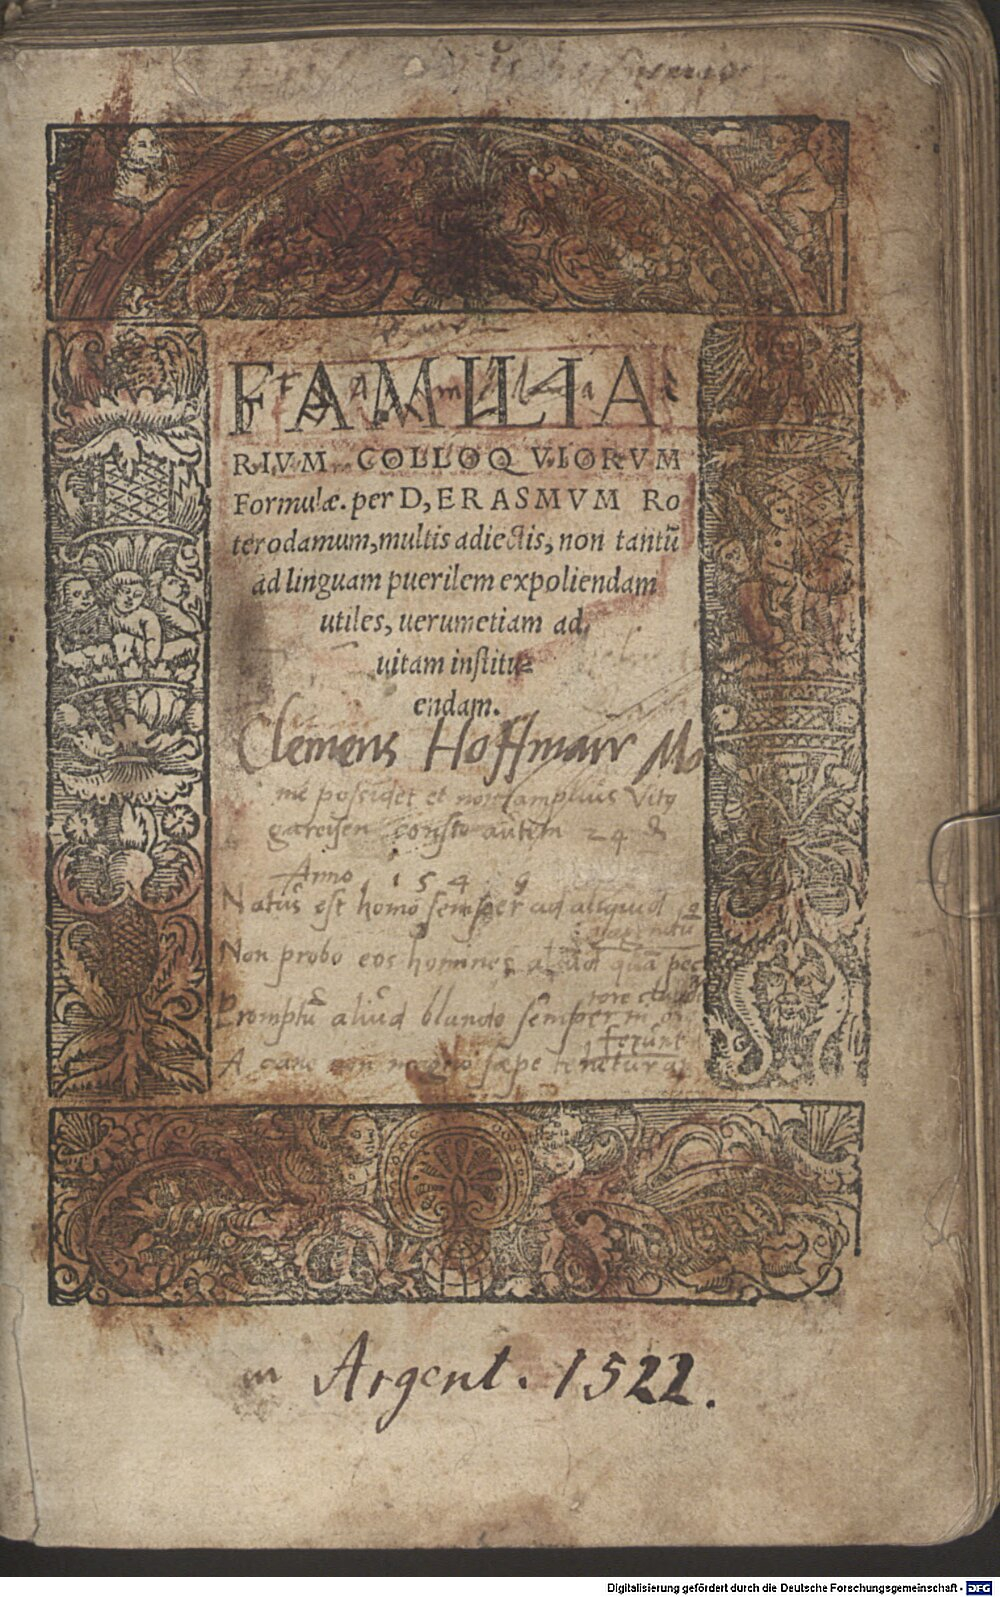 FAMILIA
RIVM COLLOQVIORVM
Formulæ. per D, ERASMVM Ro
terodamum, multis adiectis, non tantũ
ad linguam puerilem expoliendam
utiles, uerumetiam ad
uitam institu-
endam.
Clemens Hoffman Mo
me possidet et
consto autem 24 ₰
Anno 1549
Natus est homo semper ad aliquid
Non probo eos homines quã pec
tore
Promptũ aliud blando semper in ore
ferunt
A cane non magno sæpe tenetur
in Argent. 1522.
Digitalisierung gefördert durch die Deutsche Forschungsgemeinschaft - DFG